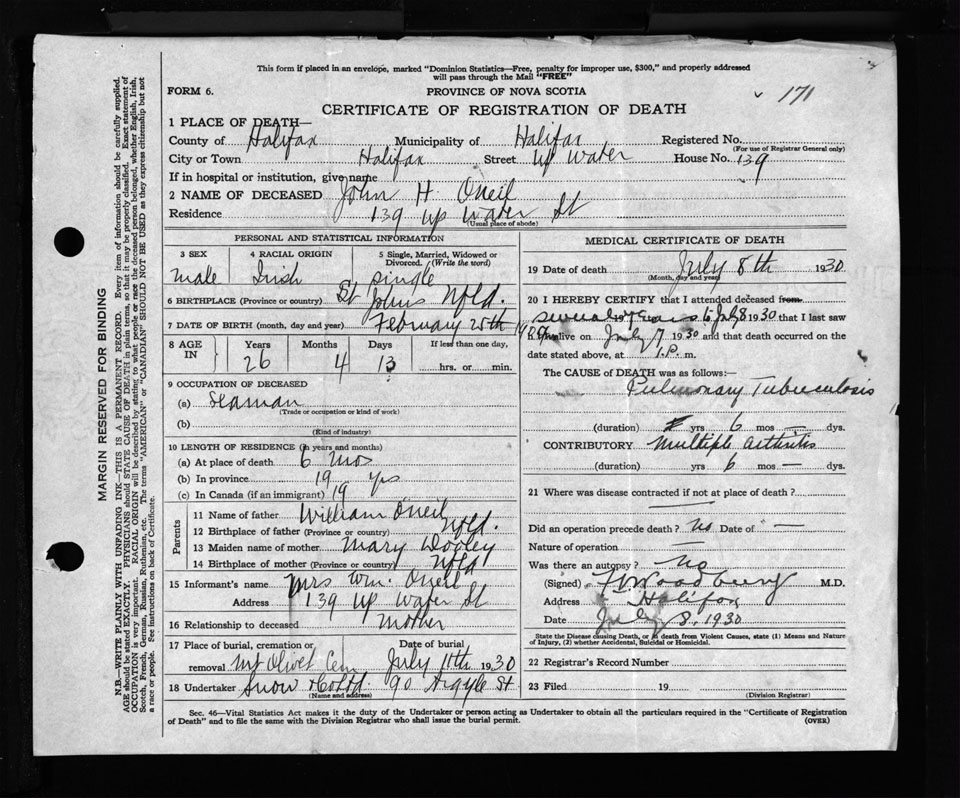 This form if placed in an envelope, marked "Dominion Statistics—Free, penalty for improper use, $300," and properly addressed
will pass through the Mail "FREE"
FORM 6.
PROVINCE OF NOVA SCOTIA
171
CERTIFICATE OF REGISTRATION OF DEATH
1 PLACE OF DEATH—
County of Halifax Municipality of Halifax Registered No.
(For use of Registrar General only)
City or Town Halifax Street Up Water House No. 139
If in hospital or institution, give name
2 NAME OF DECEASED John H. Oneil
Residence 139 Up Water St
(Usual place of abode)
PERSONAL AND STATISTICAL INFORMATION
3 SEX 4 RACIAL ORIGIN 5 Single, Married, Widowed or
Divorced. (Write the word)
male Irish single
6 BIRTHPLACE (Province or country) St Johns Nfld.
7 DATE OF BIRTH (month, day and year) February 25th
8 AGE IN Years Months Days If less than one day,
26 4 13 hrs. or min.
9 OCCUPATION OF DECEASED
(a) Seaman
(Trade or occupation or kind of work)
(b)
(Kind of industry)
10 LENGTH OF RESIDENCE (in years and months)
(a) At place of death 6 mos
(b) In province 19 yrs
(c) In Canada (if an immigrant) 19
Parents
11 Name of father William Oneil
12 Birthplace of father (Province or country) Nfld.
13 Maiden name of mother Mary Dooley
14 Birthplace of mother (Province or country) Nfld
15 Informant's name Mrs Wm. Oneil
Address 139 Up Water St
16 Relationship to deceased Mother
17 Place of burial, cremation or Date of burial
removal Mt Olivet Cem July 11th 1930
18 Undertaker Snow & Co Ltd. 90 Argyle St
(Name and address)
MEDICAL CERTIFICATE OF DEATH
19 Date of death July 8th 1930
(Month, day and year)
20 I HEREBY CERTIFY that I attended deceased from
several years to July 8 1930 that I last saw
h alive on July 7 1930 and that death occurred on the
date stated above, at 1.P. m.
The CAUSE of DEATH was as follows:
Pulmonary Tuberculosis
(duration) yrs 6 mos — dys.
CONTRIBUTORY Multiple arthritis
(duration) yrs 6 mos — dys.
21 Where was disease contracted if not at place of death?
Did an operation precede death? No Date of " —
Nature of operation —
Was there an autopsy? No
(Signed) Woodbury M.D.
Address Halifax
Date July 8. 1930
State the Disease causing Death, or in death from Violent Causes, state (1) Means and Nature
of Injury, (2) whether Accidental, Suicidal or Homicidal.
22 Registrar's Record Number
23 Filed 19
(Division Registrar)
Sec. 46—Vital Statistics Act makes it the duty of the Undertaker or person acting as Undertaker to obtain all the particulars required in the "Certificate of Registration
of Death" and to file the same with the Division Registrar who shall issue the burial permit.
(OVER)
MARGIN RESERVED FOR BINDING
N.B.—WRITE PLAINLY WITH UNFADING INK—THIS IS A PERMANENT RECORD. Every item of information should be carefully supplied.
AGE should be stated EXACTLY. PHYSICIANS should STATE CAUSE OF DEATH in plain terms, so that it may be properly classified. Exact statement of
OCCUPATION is very important. RACIAL ORIGIN will be described by stating to what people or race the deceased person belonged, whether English, Irish,
Scotch, French, German, Russian, Ruthenian, etc. The terms "AMERICAN" or "CANADIAN" SHOULD NOT BE USED as they express citizenship but not
a race or people. See instructions on back of Certificate.